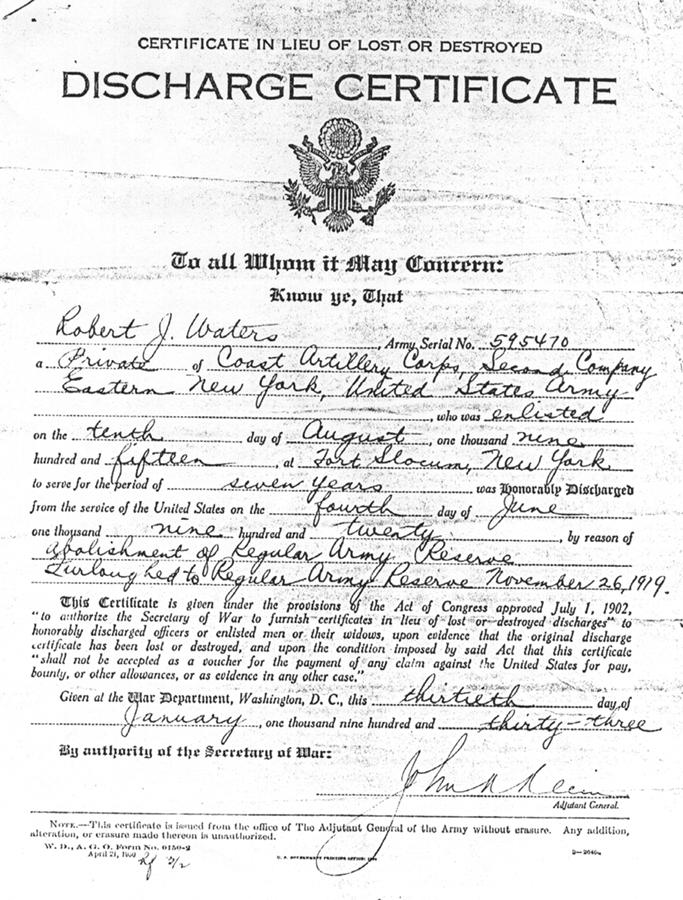 CERTIFICATE IN LIEU OF LOST OR DESTROYED
DISCHARGE CERTIFICATE
To all Whom it May Concern:
Know ye, That
Robert J. Waters, Army Serial No. 595470
a Private of Coast Artillery Corps, Second Company
Eastern New York, United States Army
, who was enlisted
on the tenth day of August, one thousand nine
hundred and fifteen, at Fort Slocum, New York
to serve for the period of seven years was Honorably Discharged
from the service of the United States on the fourth day of June
one thousand nine hundred and twenty, by reason of
abolishment of Regular Army Reserve
Furloughed to Regular Army Reserve November 26, 1919.
This Certificate is given under the provisions of the Act of Congress approved July 1, 1902,
"to authorize the Secretary of War to furnish certificates in lieu of lost or destroyed discharges" to
honorably discharged officers or enlisted men or their widows, upon evidence that the original discharge
certificate has been lost or destroyed, and upon the condition imposed by said Act that this certificate
"shall not be accepted as a voucher for the payment of any claim against the United States for pay,
bounty, or other allowances, or as evidence in any other case."
Given at the War Department, Washington, D. C., this thirtieth day of
January, one thousand nine hundred and thirty-three
By authority of the Secretary of War:
John
Adjutant General.
NOTE.—This certificate is issued from the office of The Adjutant General of the Army without erasure. Any addition,
alteration, or erasure made thereon is unauthorized.
W. D., A. G. O. Form No. 0150-2
April 21, 1930
U. S. GOVERNMENT PRINTING OFFICE